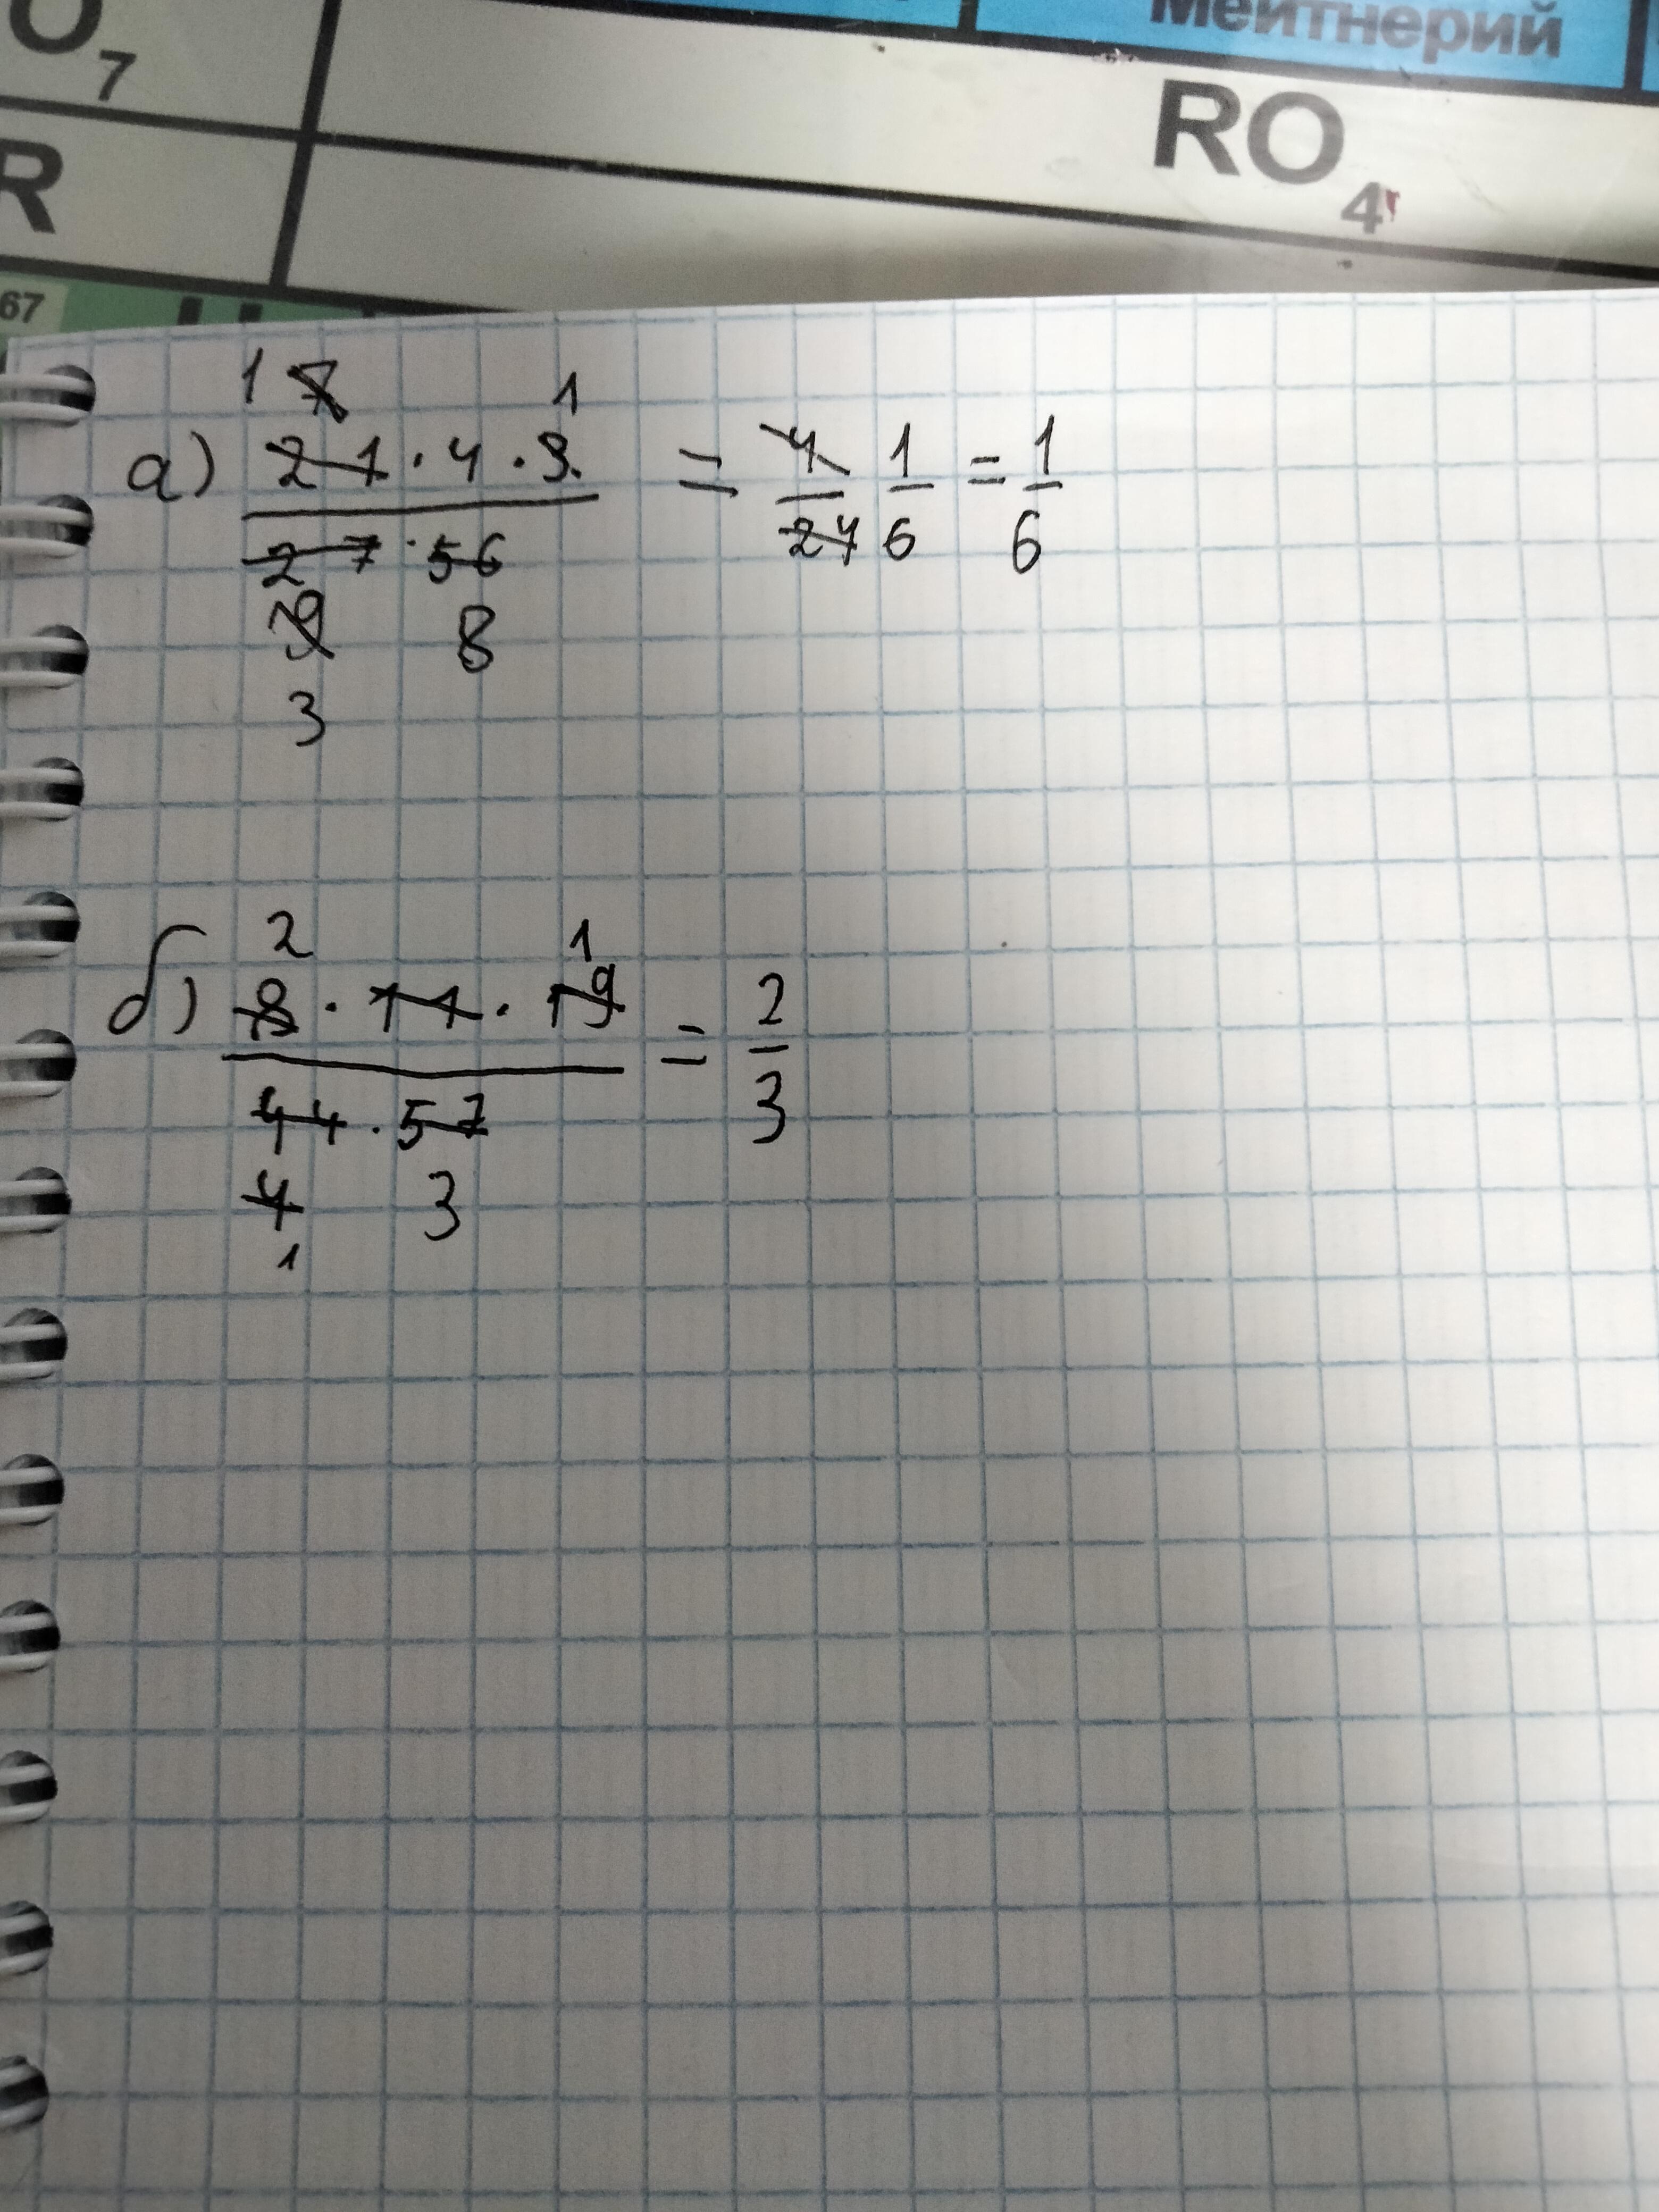 O7
Мейтнерий
R
RO4
67
1 7 1
а) 21 · 4 · 3 = 4 1 = 1
27 · 56 24 6 6
9 8
3
2 1
б) 8 · 11 · 19 = 2
44 · 57 3
4 3
1